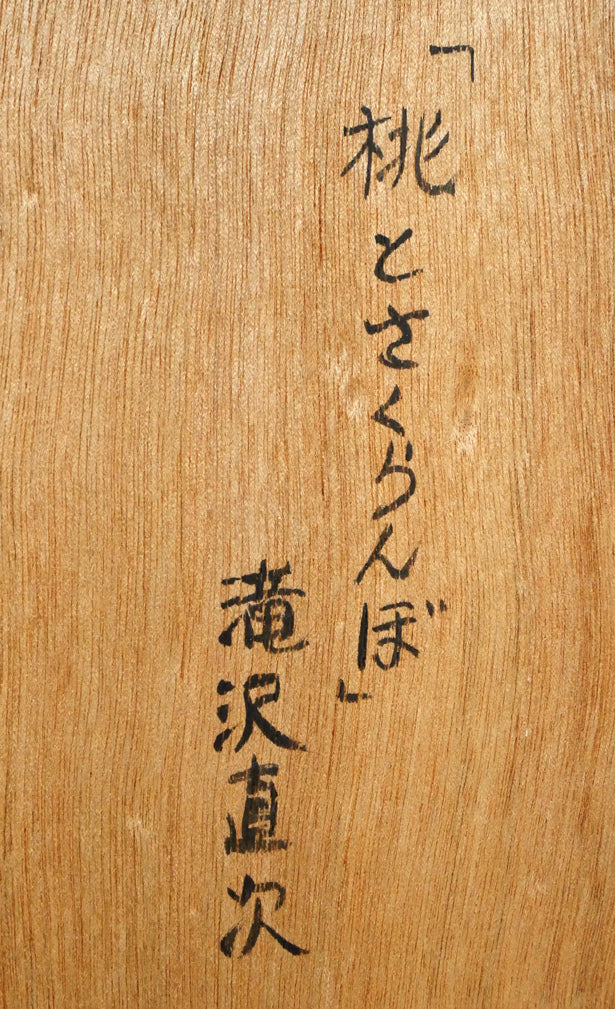 「桃とさくらんぼ」
滝沢直次